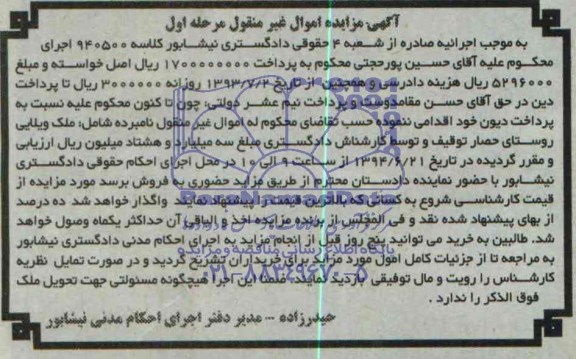 آگهی مزایده اموال غیر منقول مرحله اول
به موجب اجرائیه صادره از شعبه ۴ حقوقی دادگستری نیشابور کلاسه ۹۴۰۵۰۰ اجرای
محکوم علیه آقای حسین پورحجتی محکوم به پرداخت ۱۷۰۰۰۰۰۰۰۰ ریال اصل خواسته و مبلغ
۵۲۹۶۰۰۰ ریال هزینه دادرسی و همچنین از تاریخ ۱۳۹۳/۷/۲ روزانه ۳۰۰۰۰۰۰ ریال تا پرداخت
دین در حق آقای حسن مقامدوست و پرداخت نیم عشر دولتی، چون تا کنون محکوم علیه نسبت به
پرداخت دیون خود اقدامی ننموده حسب تقاضای محکوم له اموال غیر منقول نامبرده شامل: ملک ویلایی
روستای حصار توقیف و توسط کارشناش دادگستری مبلغ سه میلیارد و هشتاد میلیون ریال ارزیابی
و مقرر گردیده در تاریخ ۱۳۹۴/۶/۲۱ از ساعت ۹ الی ۱۰ در محل اجرای احکام حقوقی دادگستری
نیشابور با حضور نماینده دادستان محترم از طریق مزاید حضوری به فروش برسد مورد مزایده از
قیمت کارشناسی شروع به کسانی که بالاترین قیمت را پیشنهاد نمایند واگذار خواهد شد ده درصد
از بهای پیشنهاد شده نقد و فی المجلس از برنده مزایده اخذ و الباقی آن حداکثر یکماه وصول خواهد
شد. طالبین به خرید می توانید پنج روز قبل از انجام مزاید به اجرای احکام مدنی دادگستری نیشابور
به مراجعه تا از جزئیات کامل امول مورد مزاید برای خریداران تشریح گردید و در صورت تمایل نظریه
کارشناس را رویت و مال توقیفی بازدید نمایند، ضمنا این اجرا هیچگونه مسئولتی جهت تحویل ملک
فوق الذکر را ندارد.
حیدرزاده -- مدیر دفتر اجرای احکام مدنی نیشابور
پایگاه اطلاع رسانی مناقصه و مزایده
۰۲۱-۸۸۳۴۹۶۷۰-۵